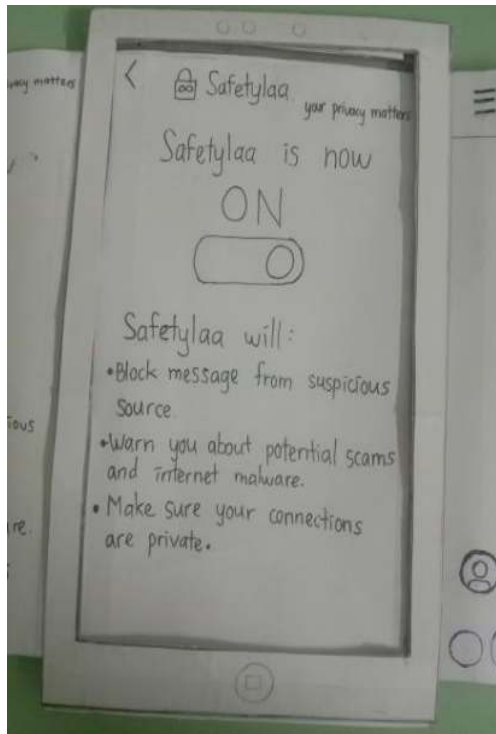 ivacy matters
< Safetylaa
your privacy matters
Safetylaa is now
ON
Safetylaa will:
•Block message from suspicious
source.
•Warn you about potential scams
and internet malware.
• Make sure your connections
are private.
ious
re.